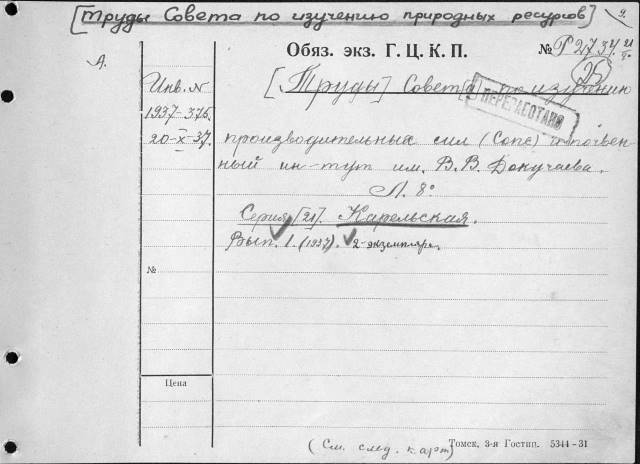 [Труды Совета по изучению природных ресурсов] 9.
Обяз. экз. Г. Ц. К. П. № Р 2737
А.
Инв. N [Труды] Совета по изучению
ПЕРЕРАБОТАНО
1937-376.
20-X-37. производительных сил (Сопс) и почвен-
ный ин-тут им. В. В. Докучаева.
Л. 8°
Серия [21]. Карельская.
Вып. 1. (1937). 2 экземпляра.
№
Цена
(См. след. карт)
Томск, 3-я Гостип. 5344-31